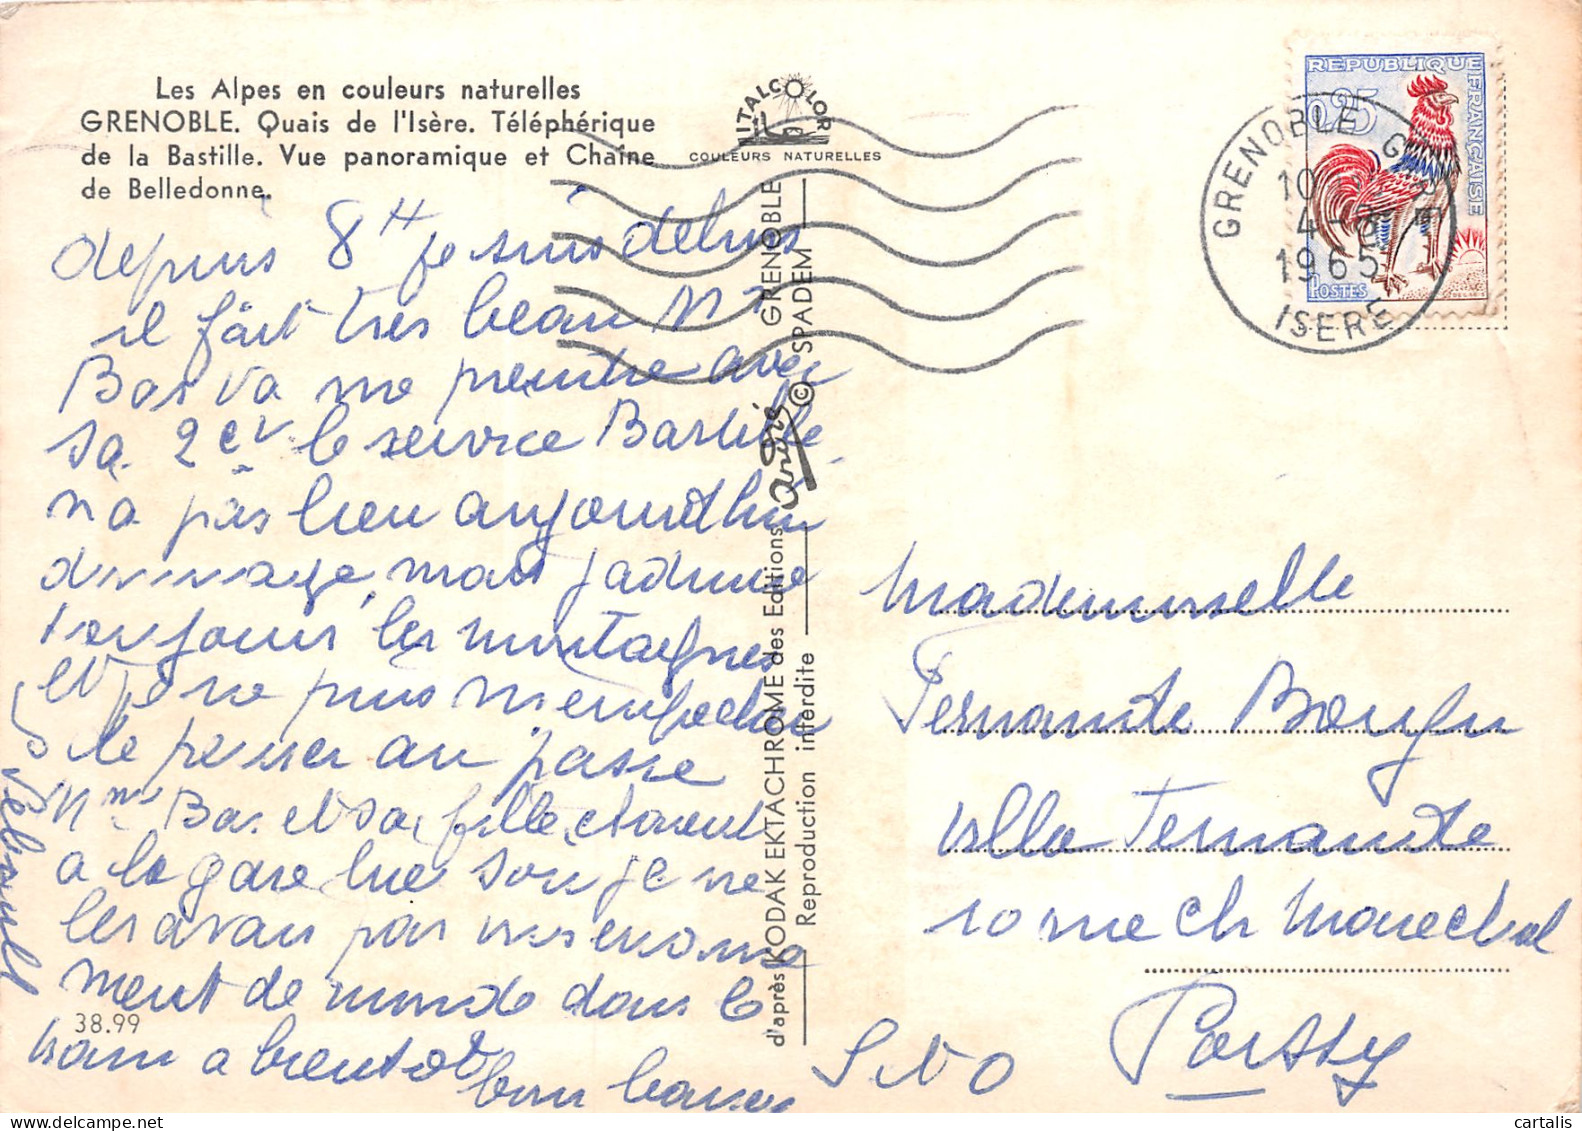 Les Alpes en couleurs naturelles
GRENOBLE. Quais de l'Isère. Téléphérique
de la Bastille. Vue panoramique et Chaîne
de Belledonne.
depuis 8H je suis debus
il fait tres beau Mr
Bas va me prendre avec
sa 2cv le service Bastille
n'a pas lieu aujourdhui
mais j'admire
toujours les montagnes
et je ne puis m'empecher
de penser au passe
Mme Bas et sa fille etaient
a la gare hier soir je ne
les avais pas vues
ment de monde dans le
train a bientot
bon baiser
38.99
ITALCOLOR
COULEURS NATURELLES
d'après KODAK EKTACHROME des Editions GRENOBLE
Reproduction interdite © SPADEM
REPUBLIQUE FRANÇAISE
0,25
POSTES
GRENOBLE GARE
10
4-
1965
ISERE
Mademoiselle
Fernande
villa Fernande
10 rue ch Marechal
SNO